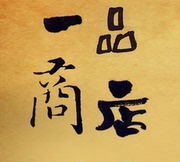 一品
商店